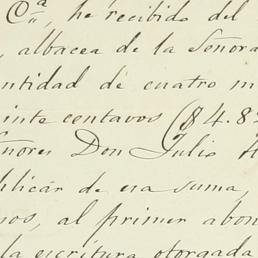 Cª, he recibido del
, albacea de la Señora
ntidad de cuatro m
inte centavos ($4.8
ñores Don Julio
plicar de esa suma,
nos, al primer abon
la escritura otorgada